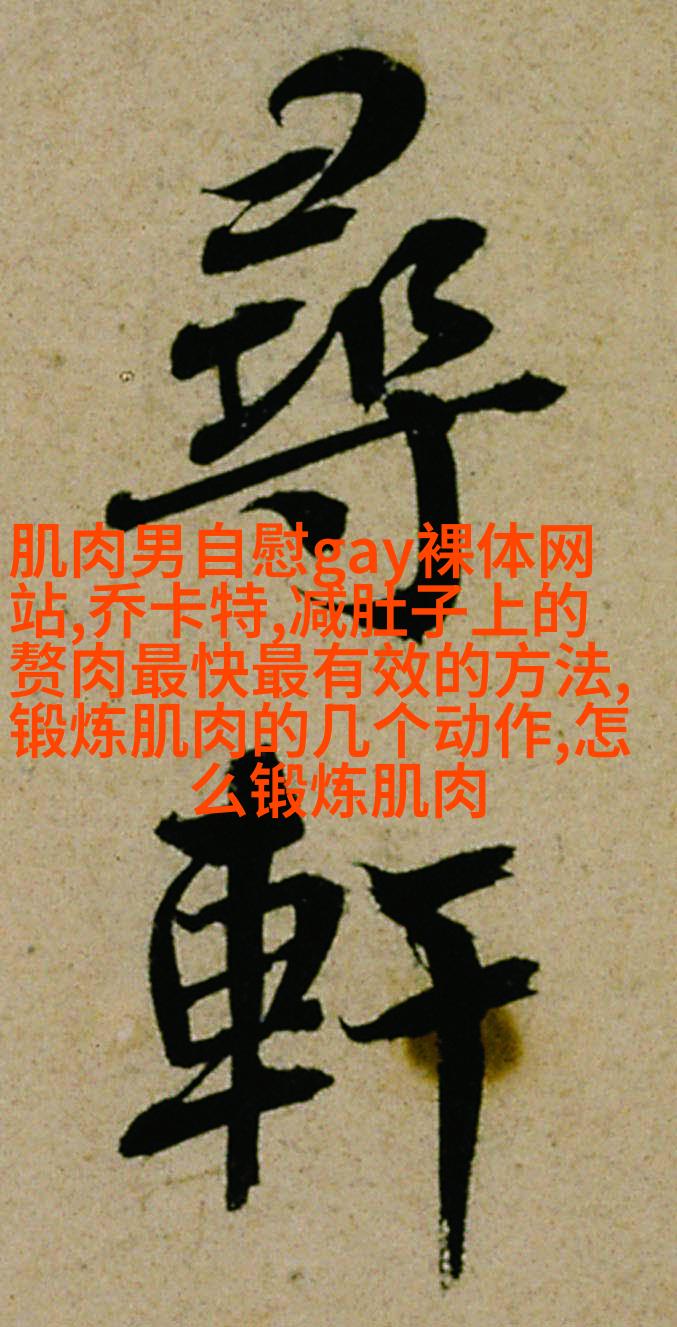 尋
肌肉男自慰gay裸体网
站,乔卡特,减肚子上的
赘肉最快最有效的方法,
锻炼肌肉的几个动作,怎
么锻炼肌肉
軒